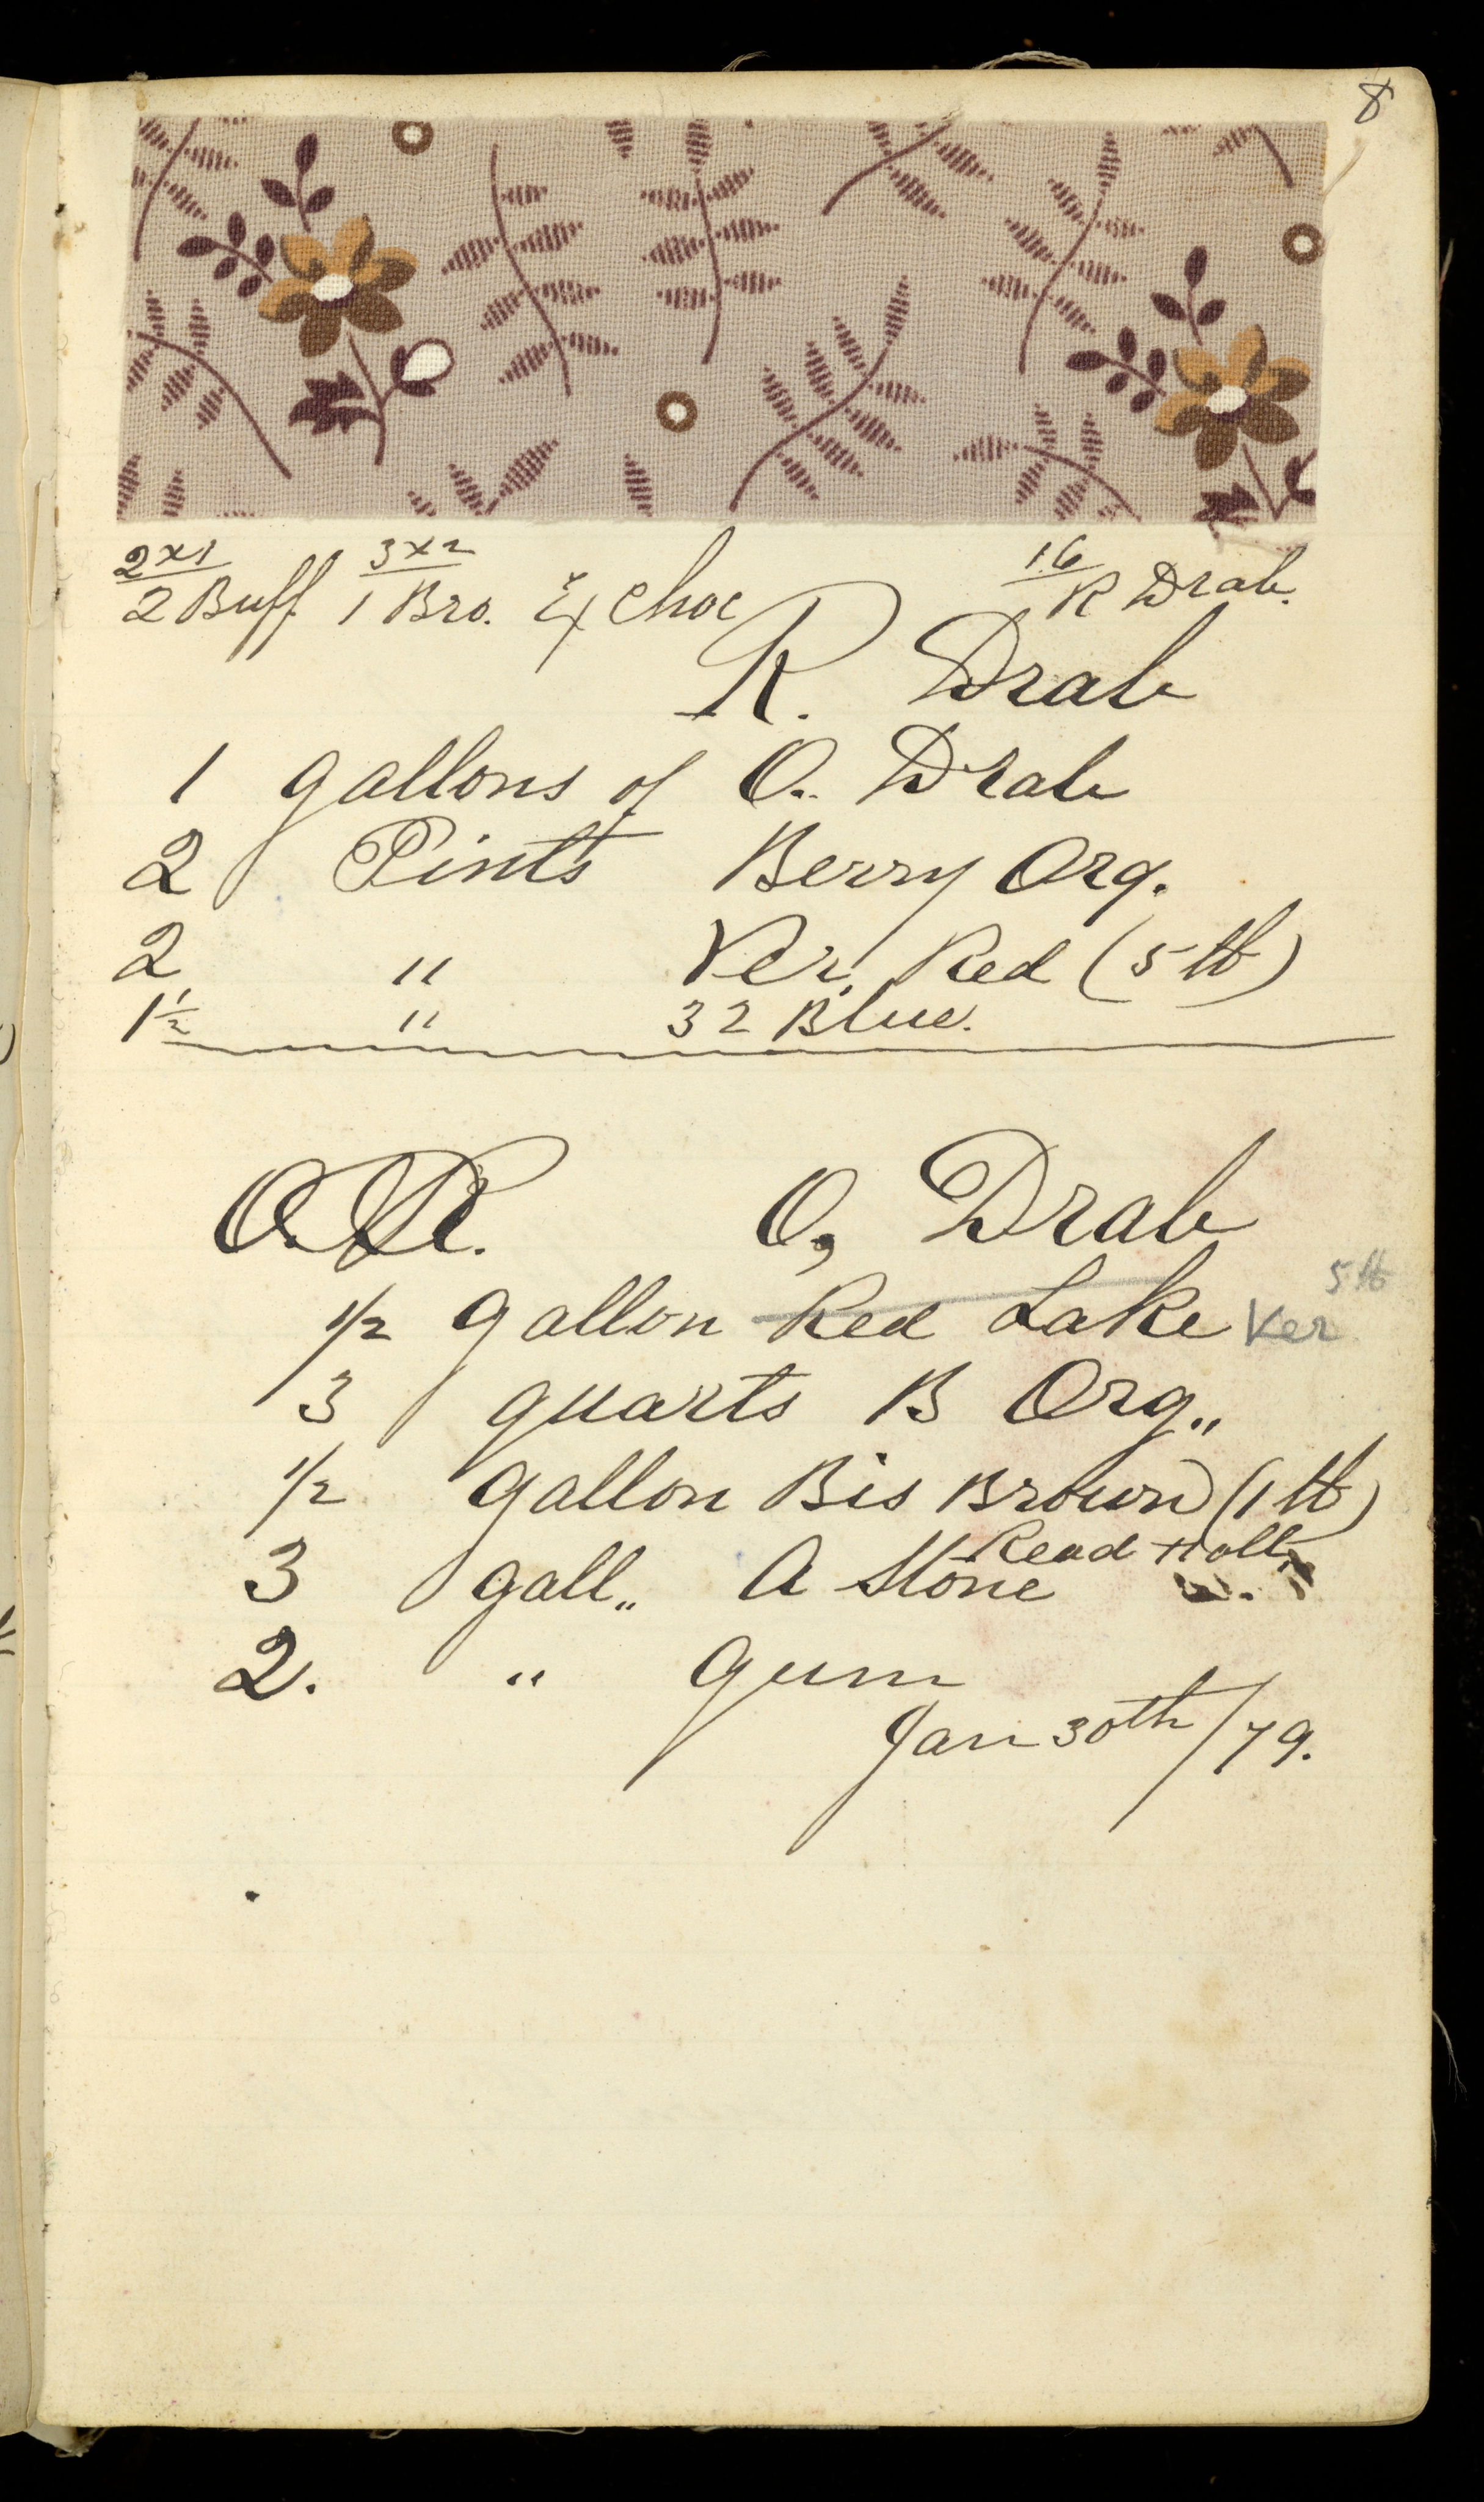 8
2x1 3x2 16
2 Buff 1 Bro. & Choc R Drab.
R. Drab
1 gallons of O. Drab
2 Pints Berry Org.
2 " Ver. Red (5 lb)
1 1/2 " 32 Blue.
O. Drab
1/2 gallon Red Lake Ver 5 lb
3 quarts B Org,,
1/2 gallon Bis Brown (1 lb)
Read Holl
3 gall,, A Stone
2. " Gum
Jan 30th/79.